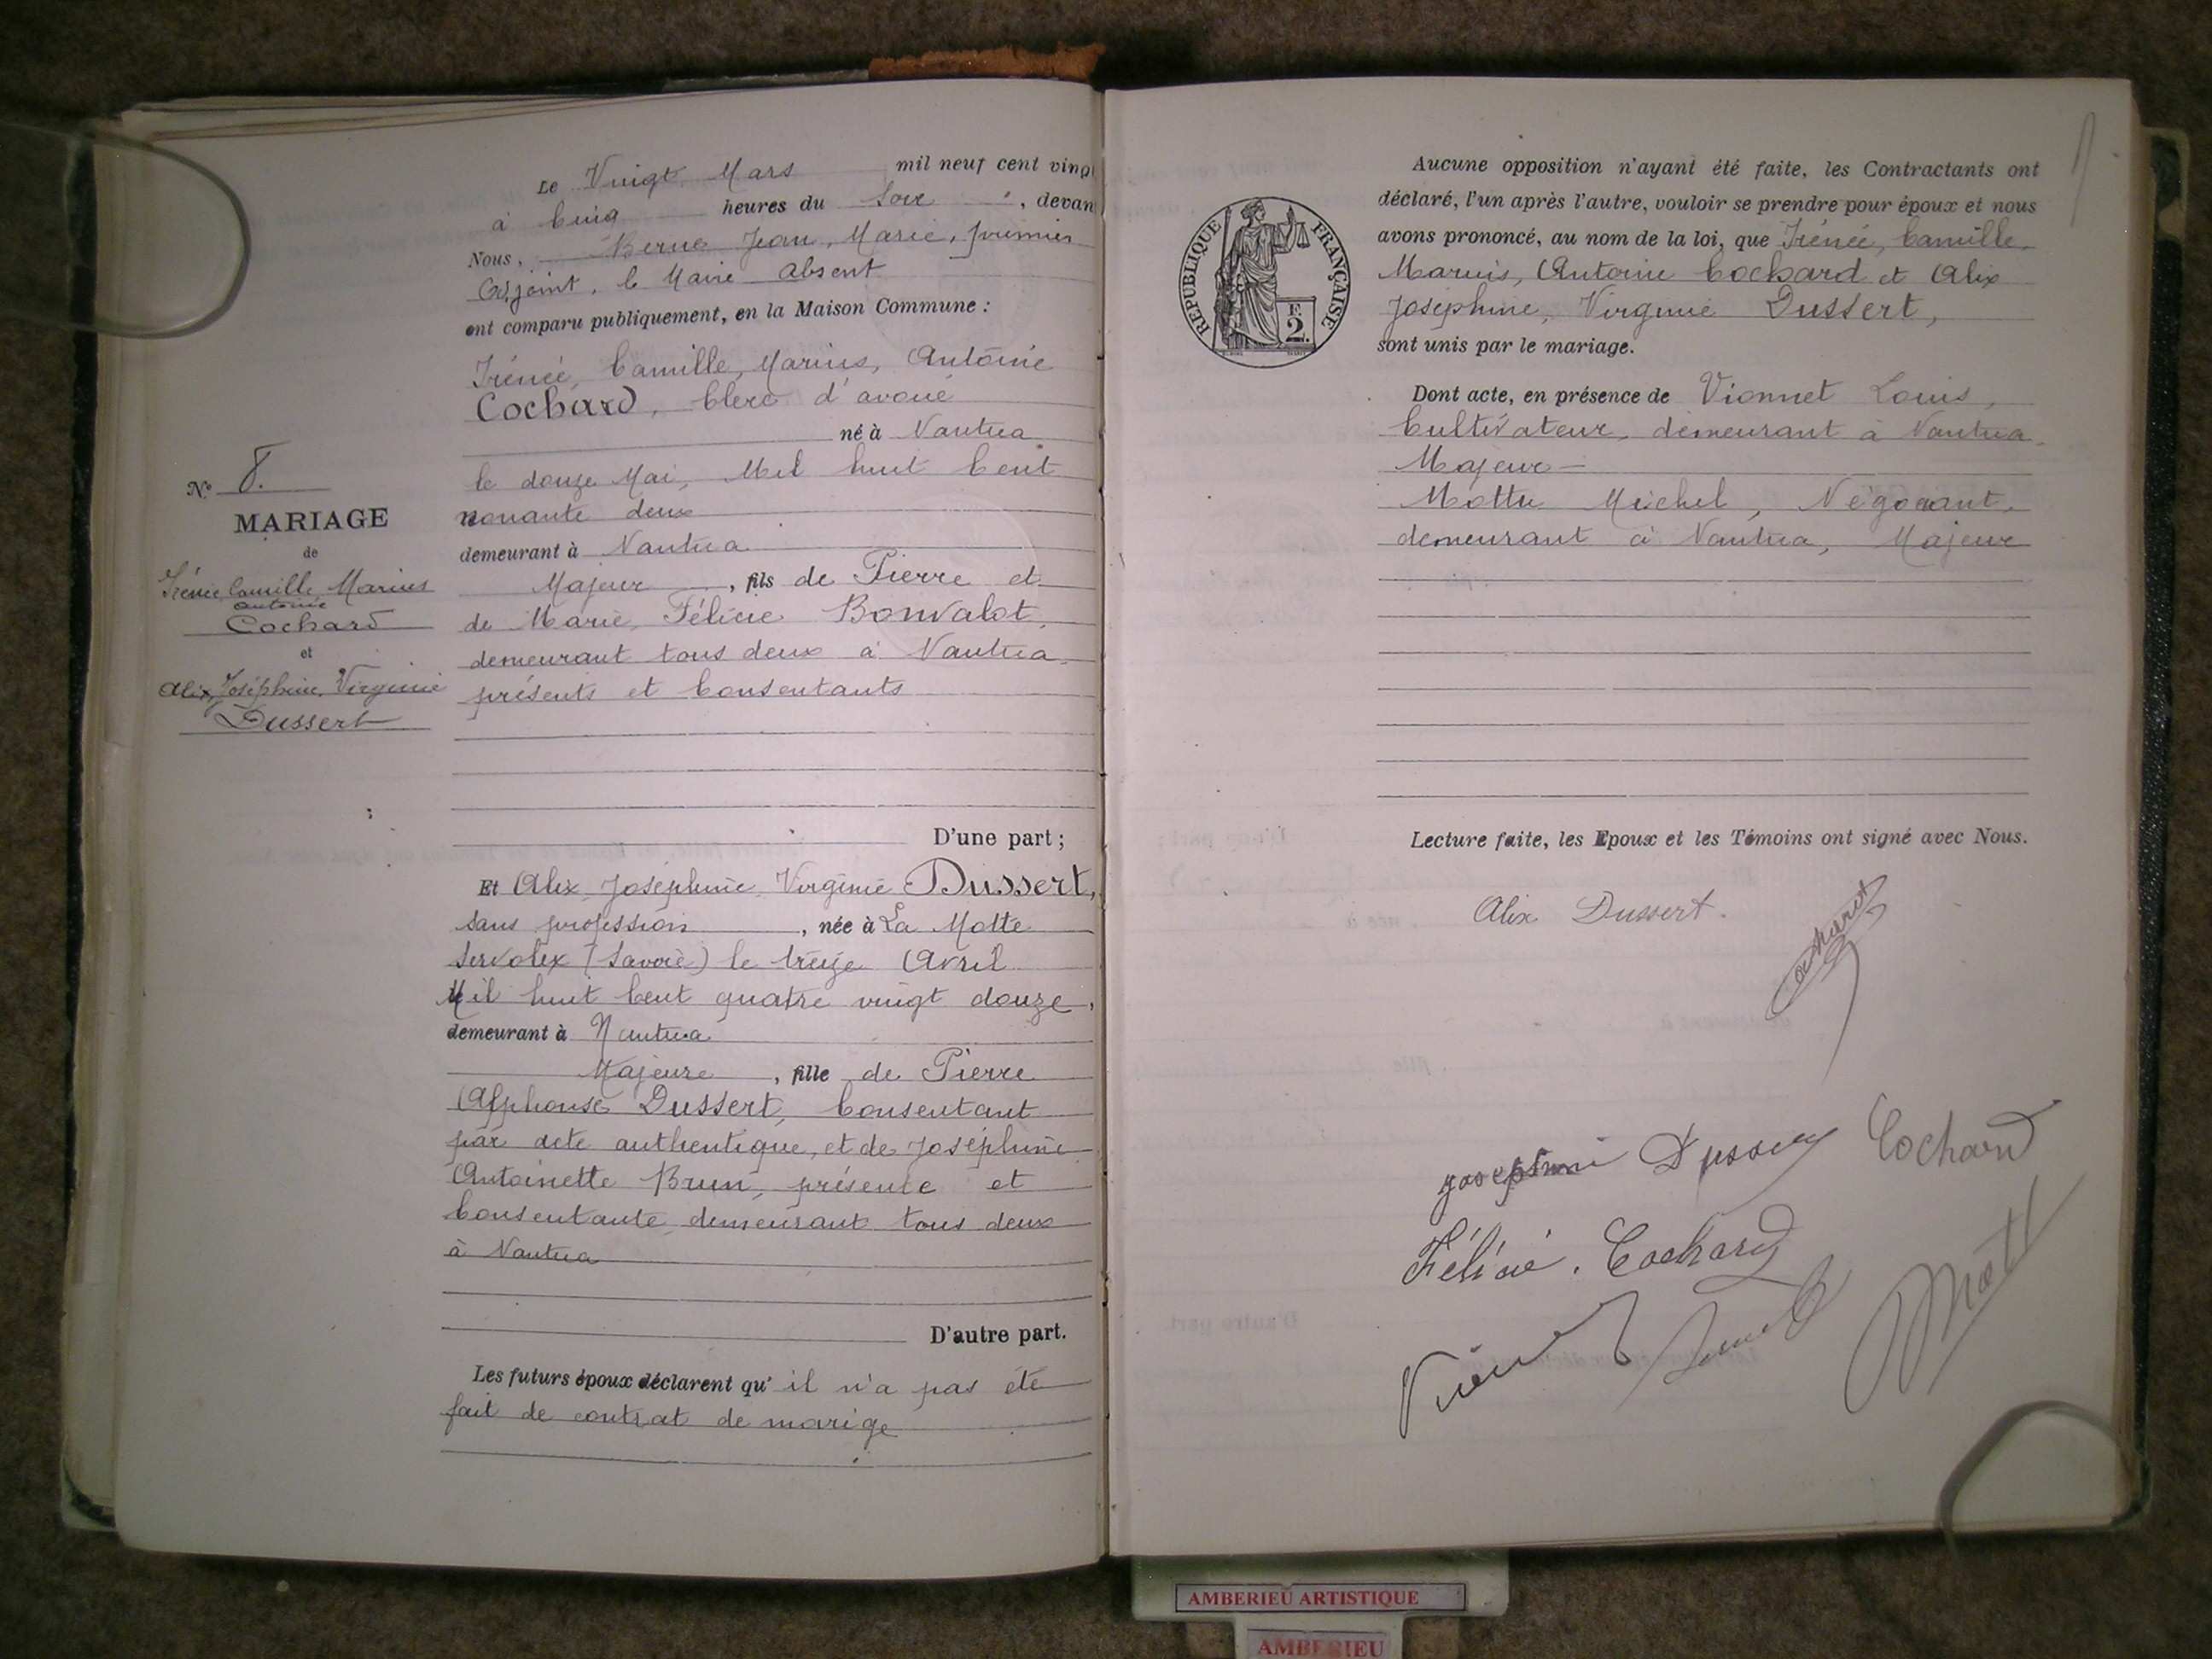 Le Vingt Mars mil neuf cent ving
à Cinq heures du Soir, devan
Nous, Berne Jean, Marie, premier
Adjoint, le Maire Absent
ont comparu publiquement, en la Maison Commune :
Irénée, Camille, Marius, Antoine
Cochard, Clerc d'avoué
né à Nantua
le douze Mai, Mil huit Cent
nonante deux
demeurant à Nantua
Majeur, fils de Pierre et
de Marie, Félicie Bonvalot,
demeurant tous deux à Nantua
présents et Consentants
D'une part ;
N° 8.
MARIAGE
de
Irénée, Camille, Marius
Antoine
Cochard
et
Alix, Joséphine, Virginie
Dussert
Et Alix, Joséphine, Virginie Dussert,
sans profession, née à La Motte
Servolex (Savoie) le treize Avril
Mil huit Cent quatre vingt douze,
demeurant à Nantua
Majeure, fille de Pierre
Alphonse Dussert, Consentant
par acte authentique, et de Joséphine
Antoinette Brun, présente et
Consentante demeurant tous deux
à Nantua
D'autre part.
Les futurs époux déclarent qu'il n'a pas été
fait de contrat de marige
Aucune opposition n'ayant été faite, les Contractants ont
déclaré, l'un après l'autre, vouloir se prendre pour époux et nous
avons prononcé, au nom de la loi, que Irénée, Camille,
Marius, Antoine Cochard et Alix
Joséphine, Virginie Dussert,
sont unis par le mariage.
RÉPUBLIQUE FRANÇAISE
2
Dont acte, en présence de Vionnet Louis,
Cultivateur, demeurant à Nantua,
Majeur —
Mottu Michel, Négociant,
demeurant à Nantua, Majeur
Lecture faite, les Epoux et les Témoins ont signé avec Nous.
Alix Dussert.
Cochard
Joséphine Dussert Cochard
Félicie. Cochard
AMBERIEU ARTISTIQUE
AMBERIEU